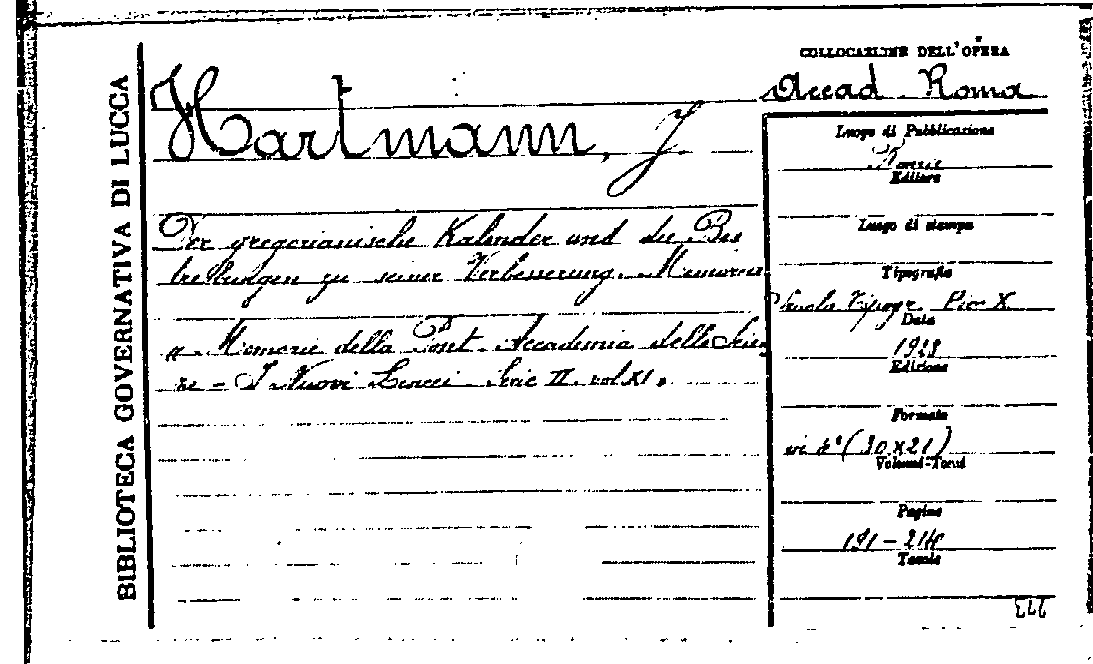 BIBLIOTECA GOVERNATIVA DI LUCCA
Hartmann, J.
Der gregorianische Kalender und die Bes
trebungen zu seiner Verbesserung. Memoria
« Memorie della Pont. Accademia delle Scien
ze - I Nuovi Lincei Serie II. vol XI »
COLLOCAZIONE DELL'OPERA
Accad. Roma
Luogo di Pubblicazione
Roma
Editore
Luogo di stampa
Tipografia
Scuola Tipogr. Pio X
Data
1928
Edizione
Formato
in 4° (30x21)
Volumi-Tomi
Pagine
Tavole